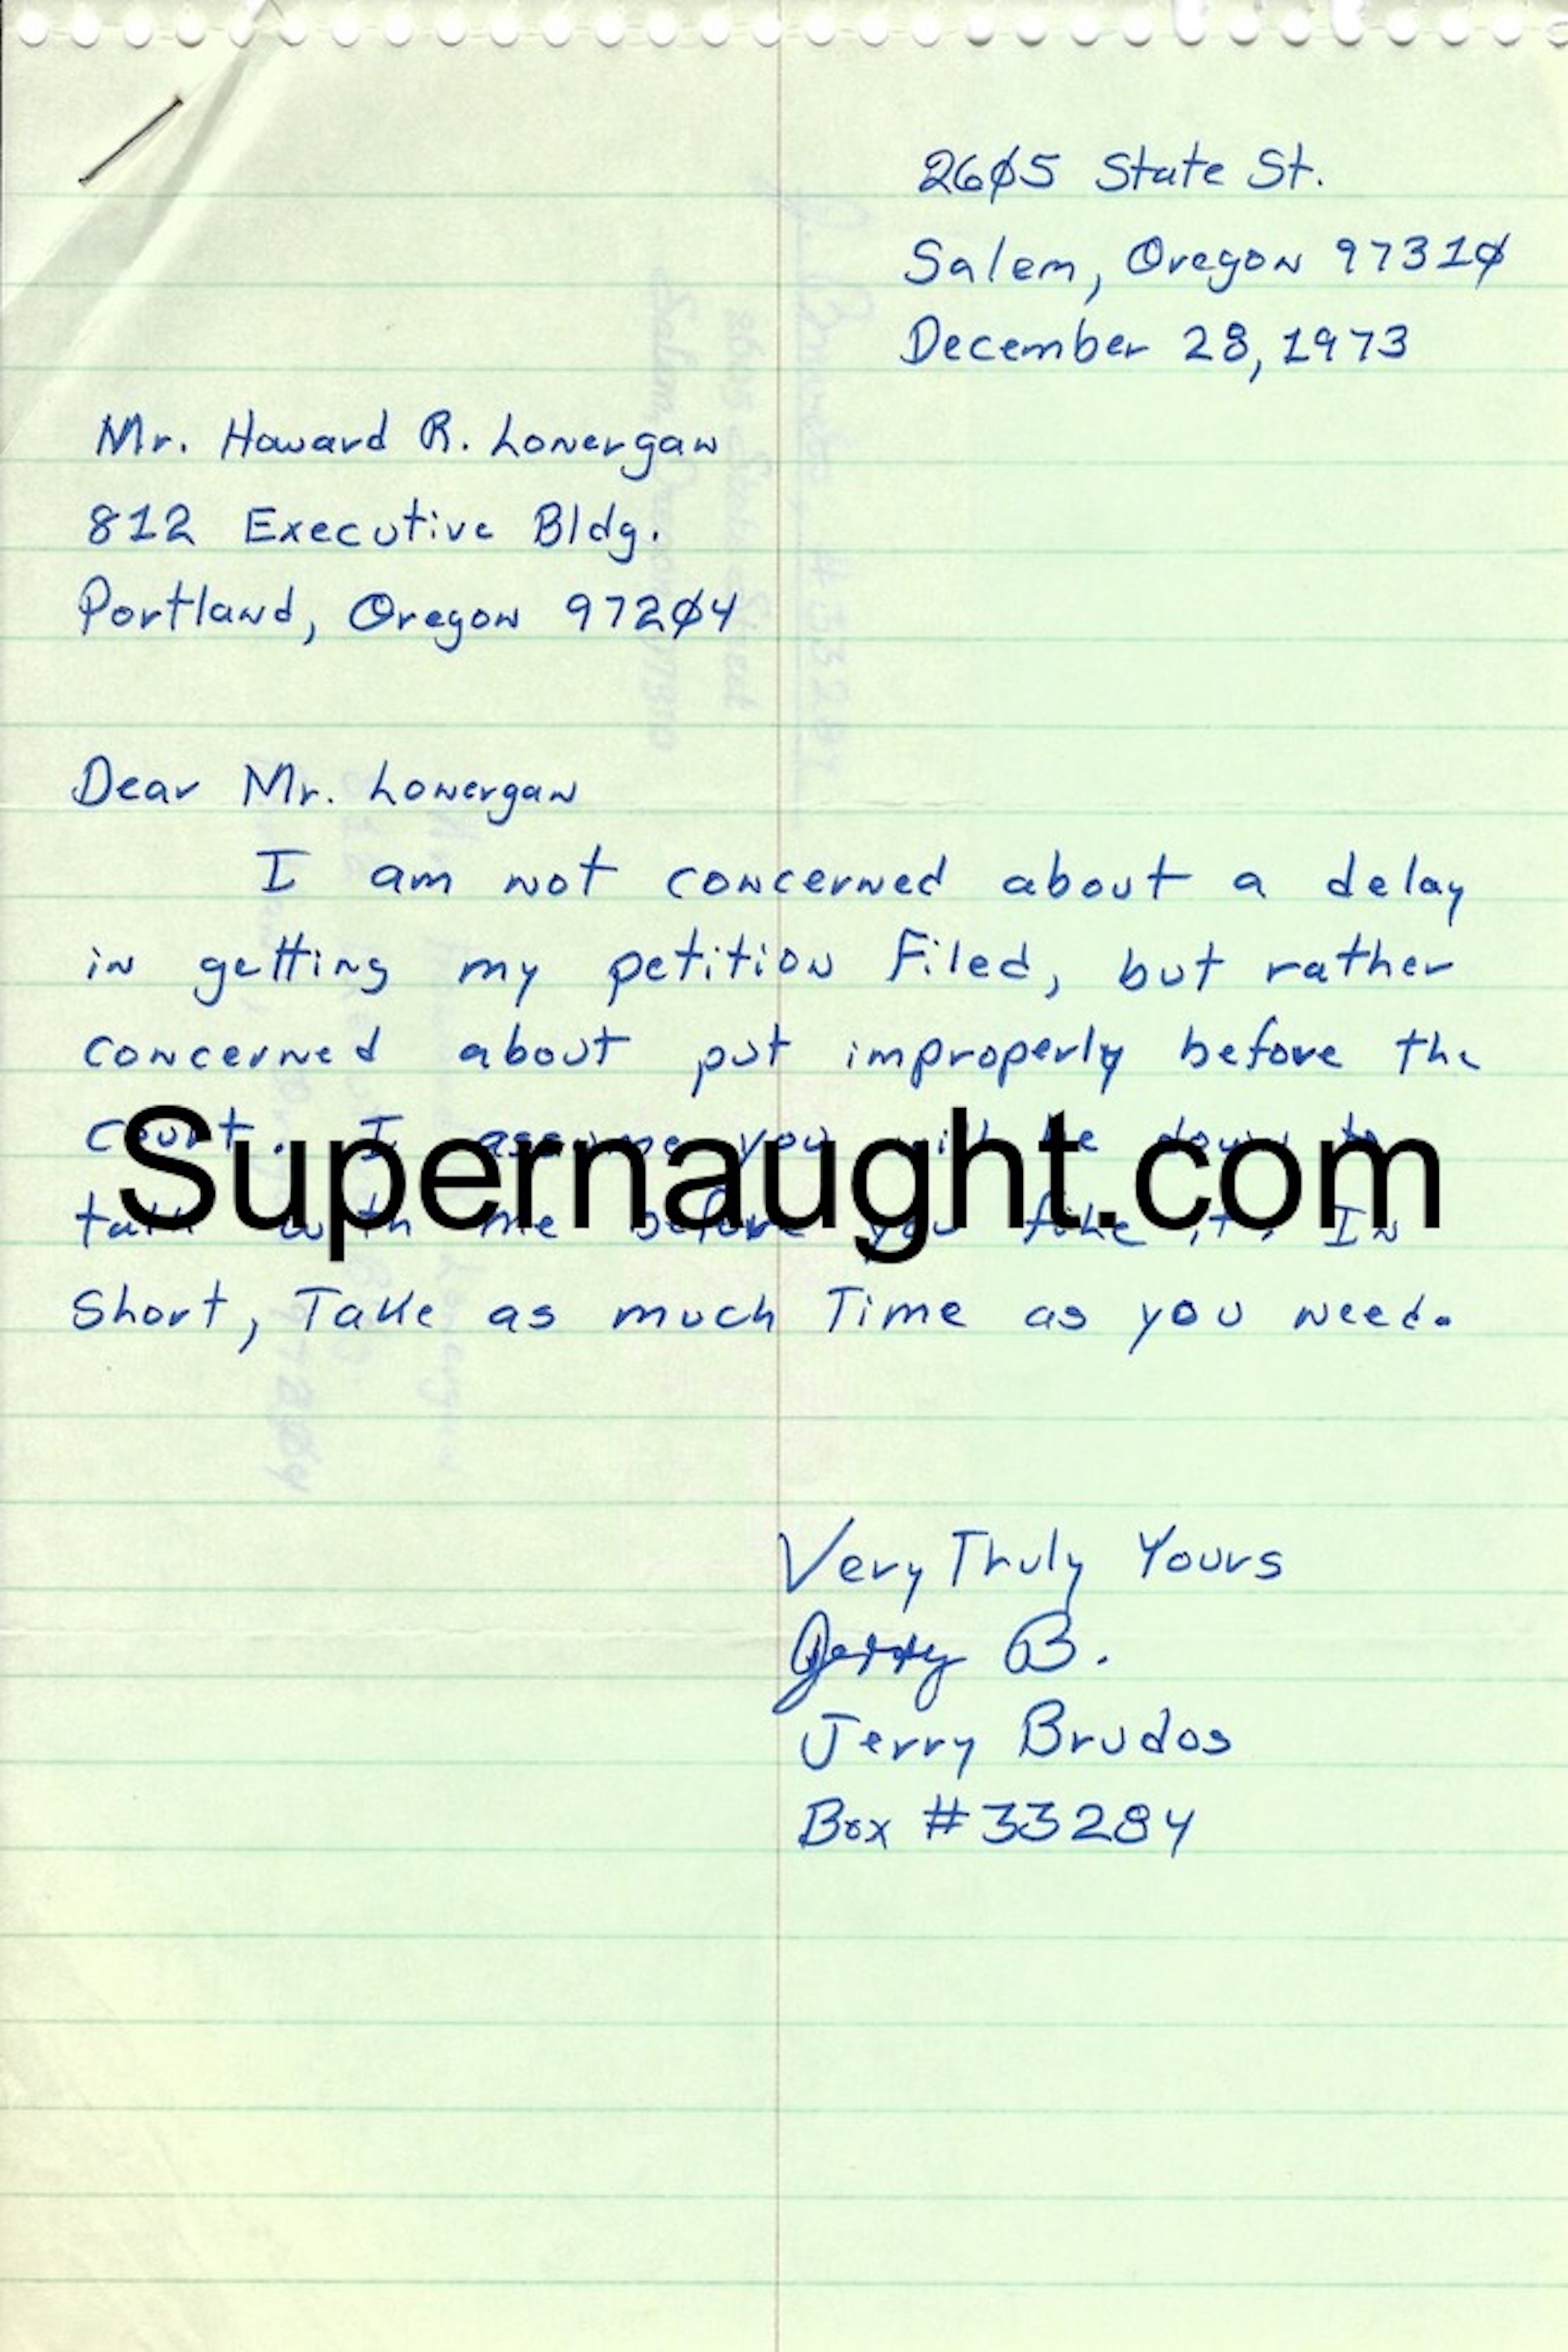 2605 State St.
Salem, Oregon 97310
December 28, 1973
Mr. Howard R. Lonergan
812 Executive Bldg.
Portland, Oregon 97204
Dear Mr. Lonergan
I am not concerned about a delay
in getting my petition Filed, but rather
concerned about put improperly before the
court. I assume you will be down to
talk with me before you file it. In
Short, Take as much Time as you need.
Supernaught.com
Very Truly Yours
Jerry B.
Jerry Brudos
Box #33284